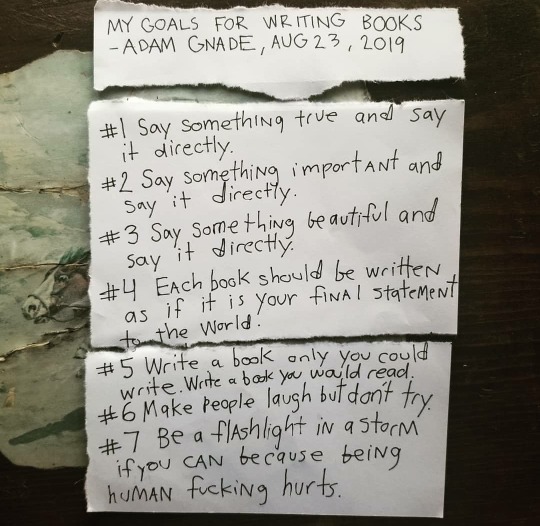 MY GOALS FOR WRITING BOOKS
-ADAM GNADE, AUG 23, 2019
#1 Say something true and say
it directly.
#2 Say something important and
say it directly.
#3 Say something beautiful and
say it directly.
#4 Each book should be written
as if it is your final statement
to the world.
#5 Write a book only you could
write. Write a book you would read.
#6 Make people laugh but don't try.
#7 Be a flashlight in a storm
if you can because being
human fucking hurts.